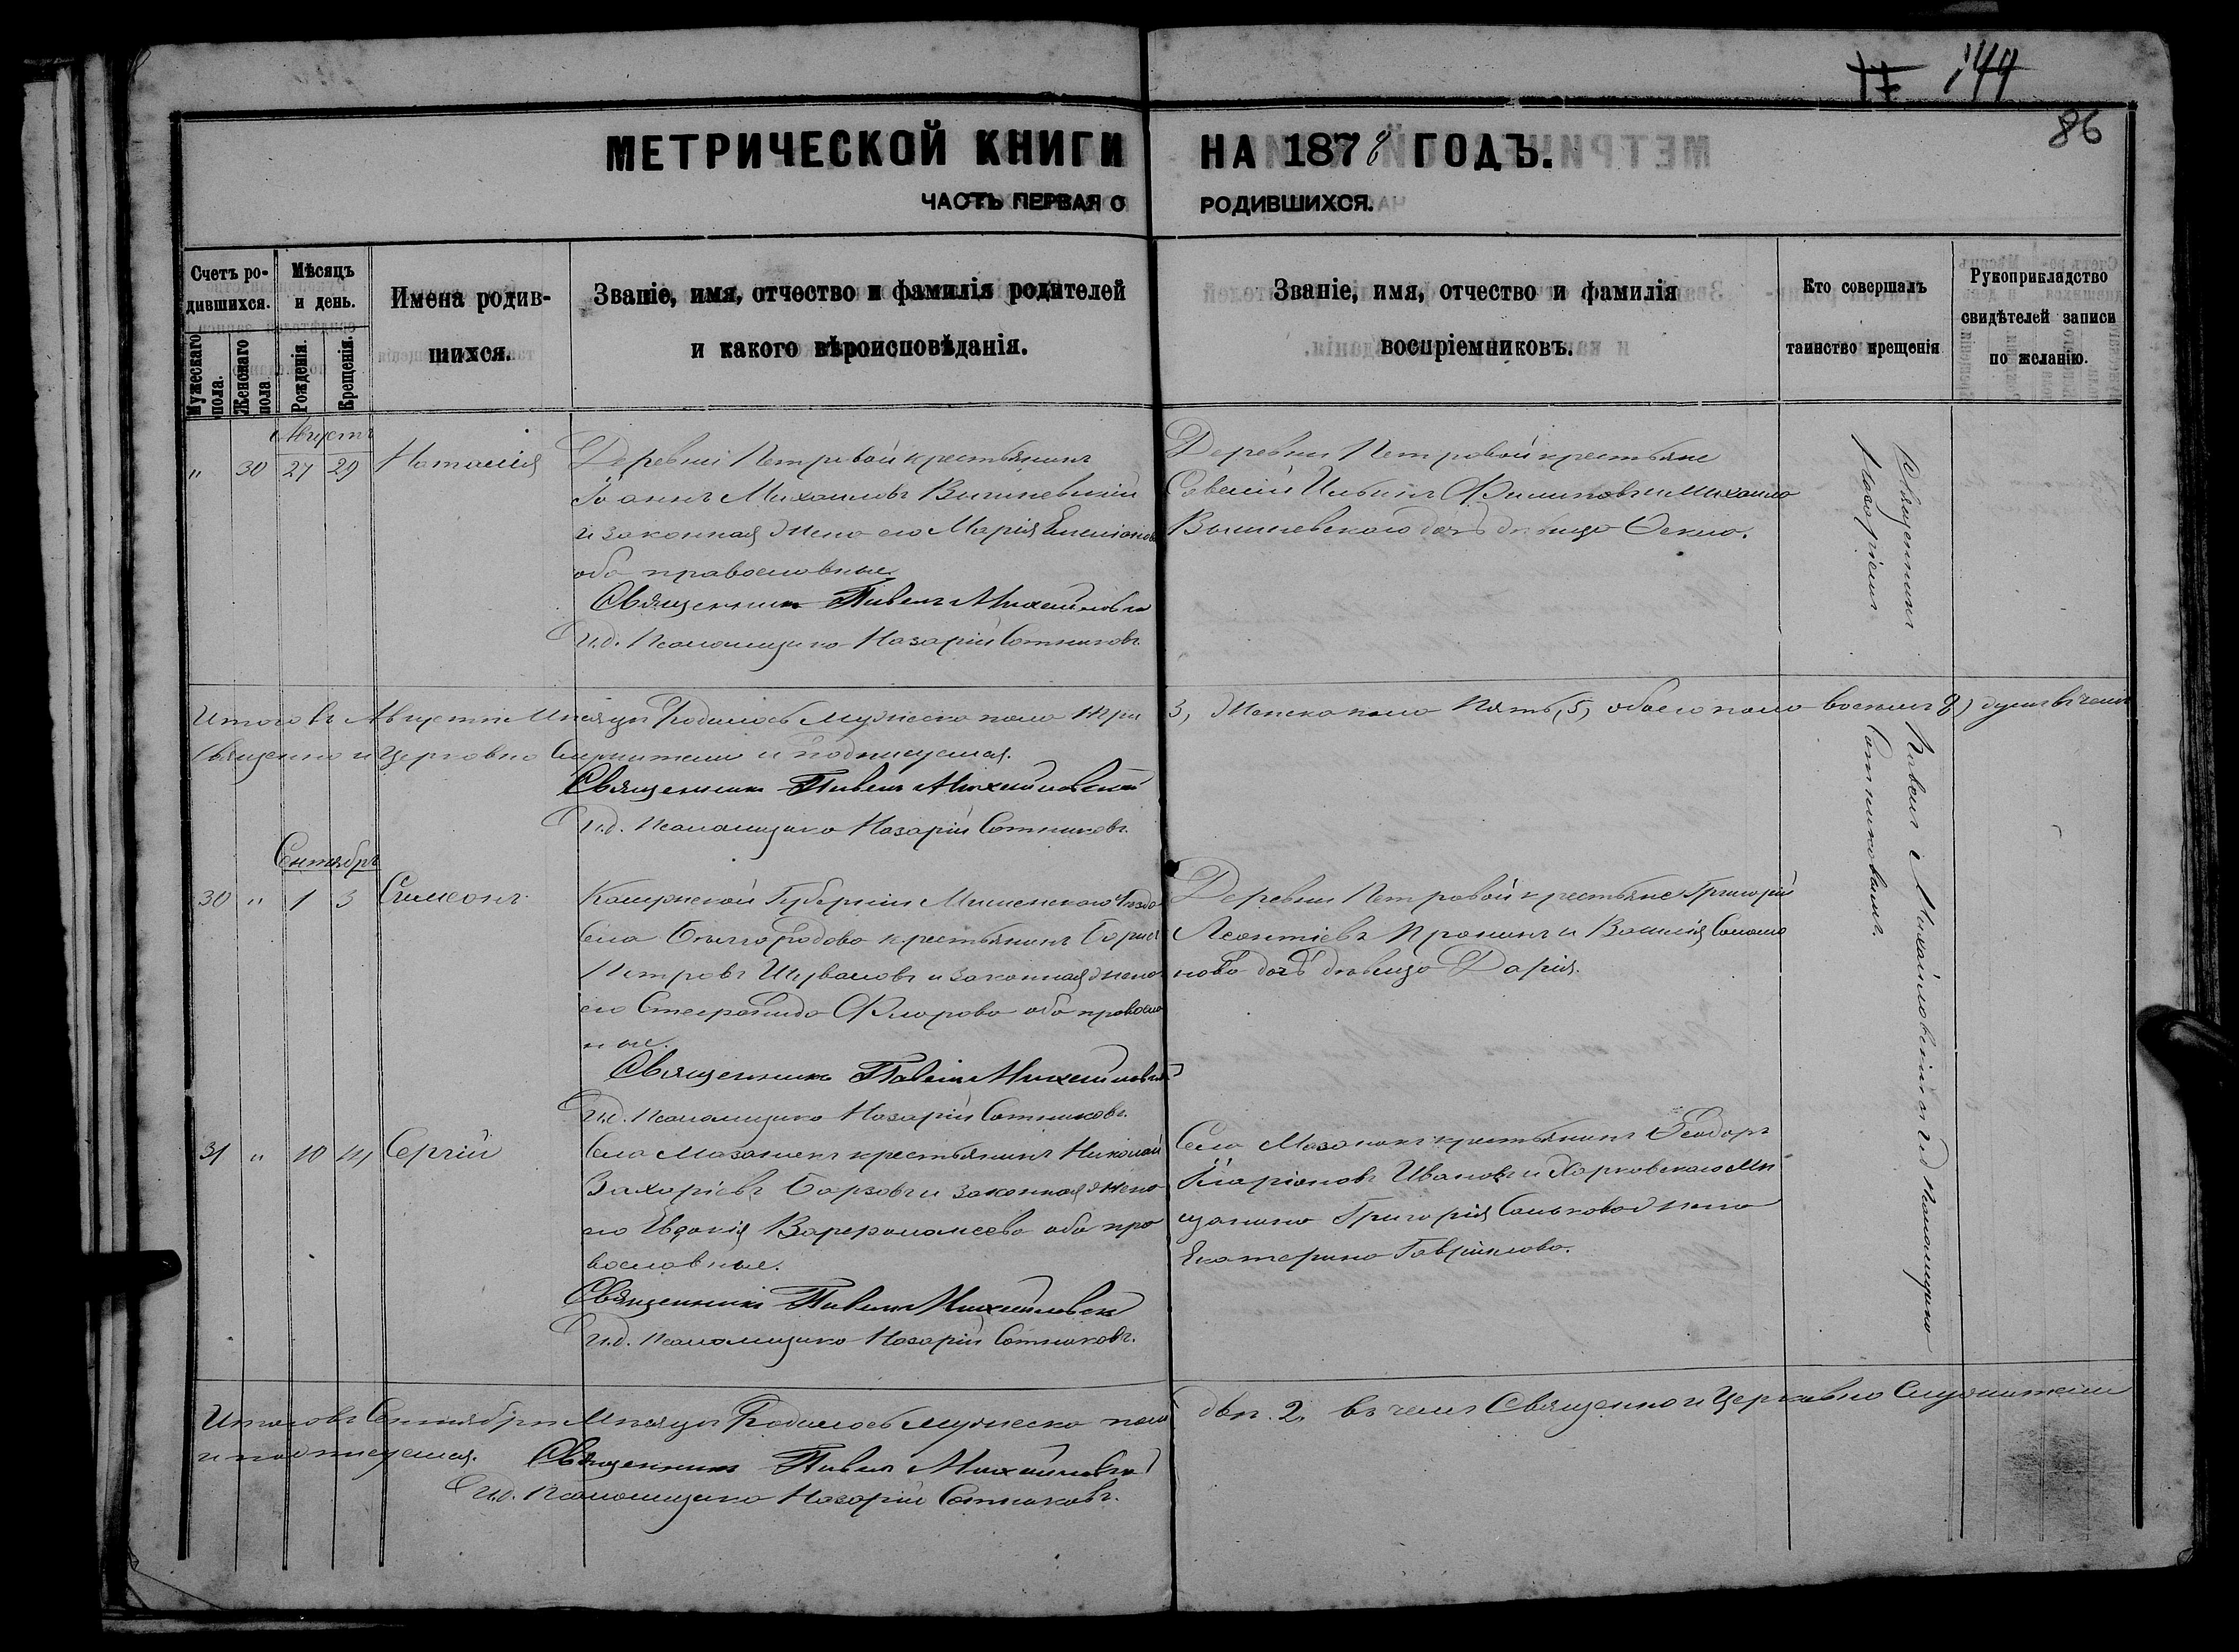 144
86
МЕТРИЧЕСКОЙ КНИГИ НА 1878 ГОДЪ.
ЧАСТЬ ПЕРВАЯ О РОДИВШИХСЯ.
Счетъ ро-
дившихся.
Мужескаго пола.
Женскаго пола
Мѣсяцъ
и день.
Рожденія.
Крещенія.
Имена родив-
шихся.
Званіе, имя, отчество и фамилія родителей
и какого вѣроисповѣданія.
Званіе, имя, отчество и фамилія
воспріемниковъ.
Кто совершалъ
таинство крещенія
Рукоприкладство
свидѣтелей записи
по желанію.
Августъ
" 30 27 29 Наталія
Деревни Петровой крестьянинъ
Іоаннъ Михаиловъ Вишневскій
и законная жена его Марія
оба православные.
Священникъ Павелъ Михайловскій
И.д. Псаломщика Назарій Сотниковъ.
Деревни Петровой крестьяне
Савелій Ильинъ и Михаила
Вишневскаго дочь дѣвица
Итого въ Августѣ Мѣсяцѣ Родилось мужеска пола три
3, Женска пола Пять, 5, обоего пола восемь 8) душъ въ чемъ
Священно и Церковно Служители и подписуемся.
Священникъ Павелъ Михайловскій
И.д. Псаломщика Назарій Сотниковъ.
Сентябрь
30 " 1 3 Симеонъ
Калужской Губерніи Уѣзда
Села крестьянинъ Борисъ
Петровъ Шуваловъ и законная жена
его Стефанида Флорова оба православ
ные.
Священникъ Павелъ Михайловскій
И.д. Псаломщика Назарій Сотниковъ.
Деревни Петровой крестьяне Григорій
Леонтіевъ Пронинъ и Василія
нова дочь дѣвица Дарія.
31 " 10 14 Сергій
Села Мазанокъ крестьянинъ Николай
Захаріевъ Барзовъ и законная жена
его Евдокія Варфоломеева оба пра
вославные.
Священникъ Павелъ Михайловскій
И.д. Псаломщика Назарій Сотниковъ.
Села Мазанокъ крестьянинъ Ѳеодоръ
Иларіоновъ Ивановъ и Харьковскаго Мѣ
щанина Григорія жена
Екатерина Гавріилова.
Священникъ Павелъ Михайловскій съ и.д. Псаломщика
Назаріемъ Сотниковымъ.
Итого въ Сентябрѣ Мѣсяцѣ Родилось мужеска пола
два. 2, въ чемъ Священно и Церковно Служители
и подписуемся.
Священникъ Павелъ Михайловскій
И.д. Псаломщика Назарій Сотниковъ.